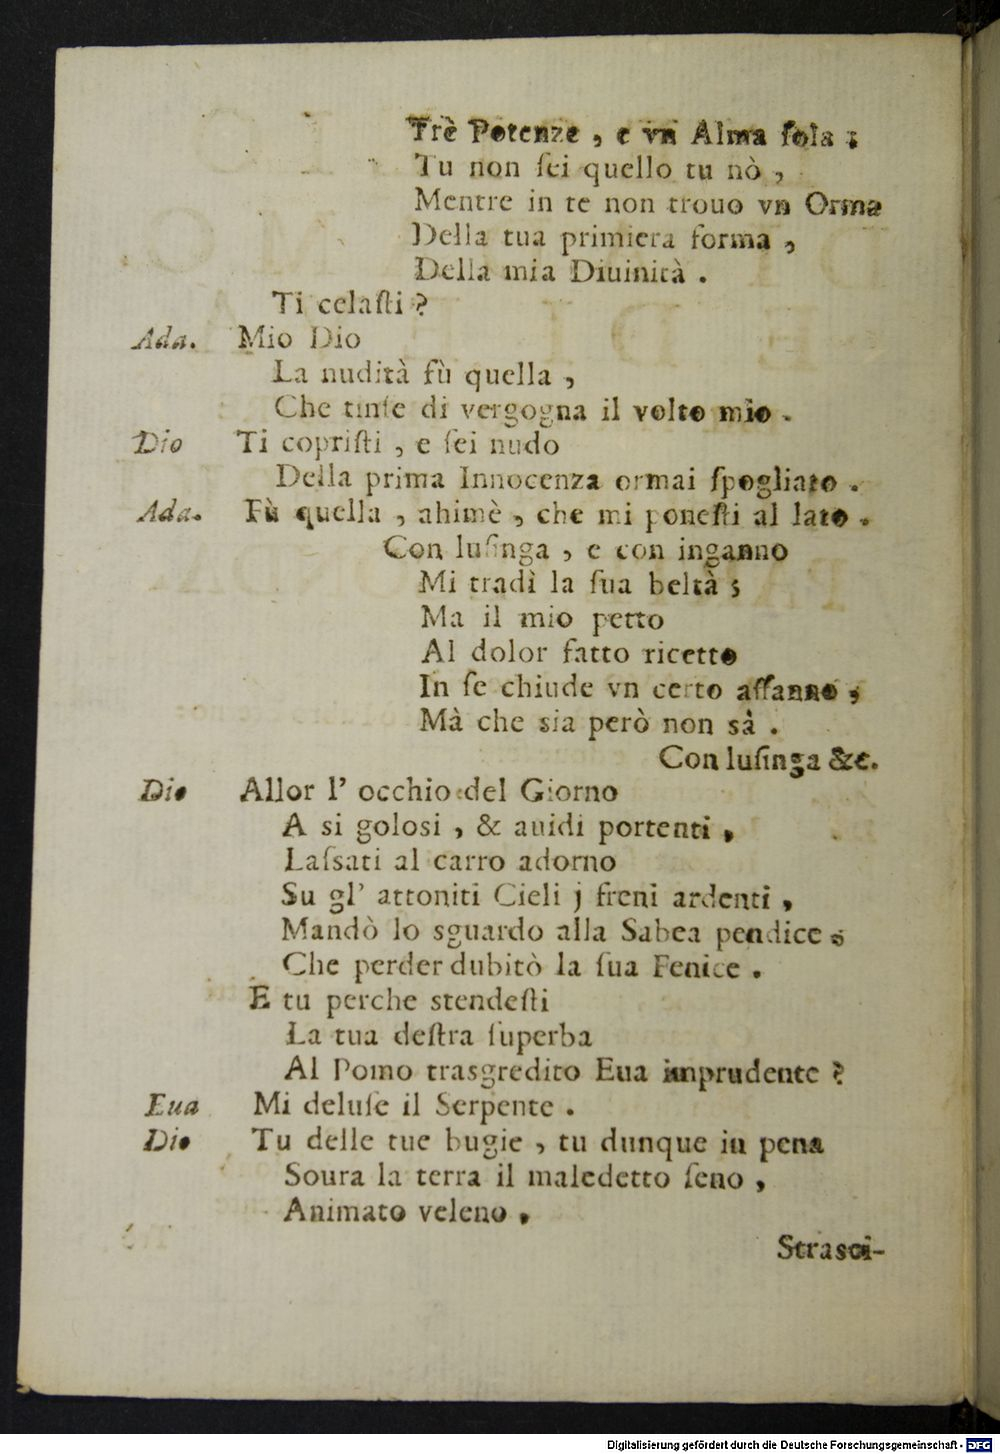 Trè Potenze , e vn Alma ſola ;
Tu non ſei quello tu nò ,
Mentre in te non trouo vn Orma
Della tua primiera forma ,
Della mia Diuinità .
Ti celaſti ?
Ada. Mio Dio
La nudità fù quella ,
Che tinſe di vergogna il volto mio .
Dio Ti copriſti , e ſei nudo
Della prima Innocenza ormai ſpogliato .
Ada. Fù quella , ahimè , che mi poneſti al lato .
Con luſinga , e con inganno
Mi tradì la ſua beltà ;
Ma il mio petto
Al dolor fatto ricetto
In ſe chiude vn certo affanno ,
Mà che sia però non sà .
Con luſinga &c.
Dio Allor l' occhio del Giorno
A si golosi , & auidi portenti ,
Laſsati al carro adorno
Su gl' attoniti Cieli j freni ardenti ,
Mandò lo sguardo alla Sabea pendice ;
Che perder dubitò la ſua Fenice .
E tu perche stendeſti
La tua deſtra ſuperba
Al Pomo trasgredito Eua imprudente ?
Eua Mi deluſe il Serpente .
Dio Tu delle tue bugie , tu dunque in pena
Soura la terra il maledetto ſeno ,
Animato veleno ,
Strasci-
Digitalisierung gefördert durch die Deutsche Forschungsgemeinschaft - DFG